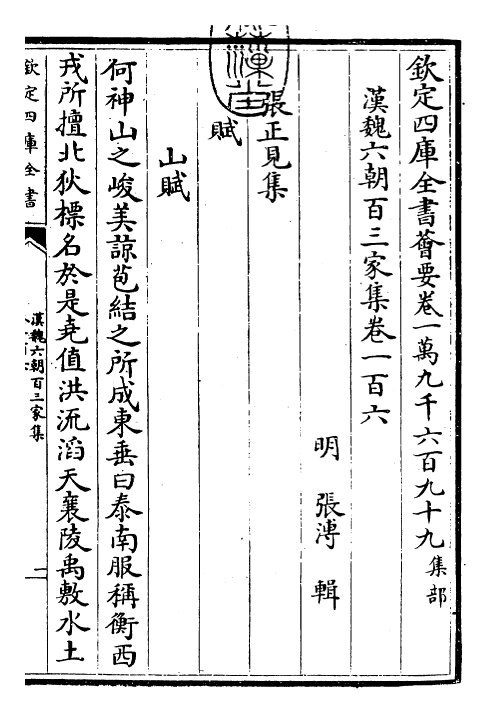 欽定四庫全書薈要卷一萬九千六百九十九 集部
漢魏六朝百三家集卷一百六
明 張溥 輯
張正見集
賦
山賦
何神山之峻美諒苞結之所成東垂曰泰南服稱衡西
戎所擅北狄標名於是堯值洪流滔天襄陵禹敷水土
欽定四庫全書
漢魏六朝百三家集